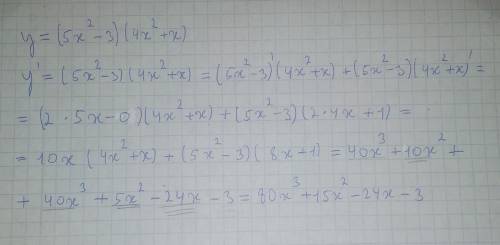 y = (5x² - 3)(4x² + x)
y' = (5x² - 3)(4x² + x) = (5x² - 3)'(4x² + x) + (5x² - 3)(4x² + x)' =
= (2 · 5x - 0)(4x² + x) + (5x² - 3)(2 · 4x + 1) =
= 10x (4x² + x) + (5x² - 3)(8x + 1) = 40x³ + 10x² +
+ 40x³ + 5x² - 24x - 3 = 80x³ + 15x² - 24x - 3